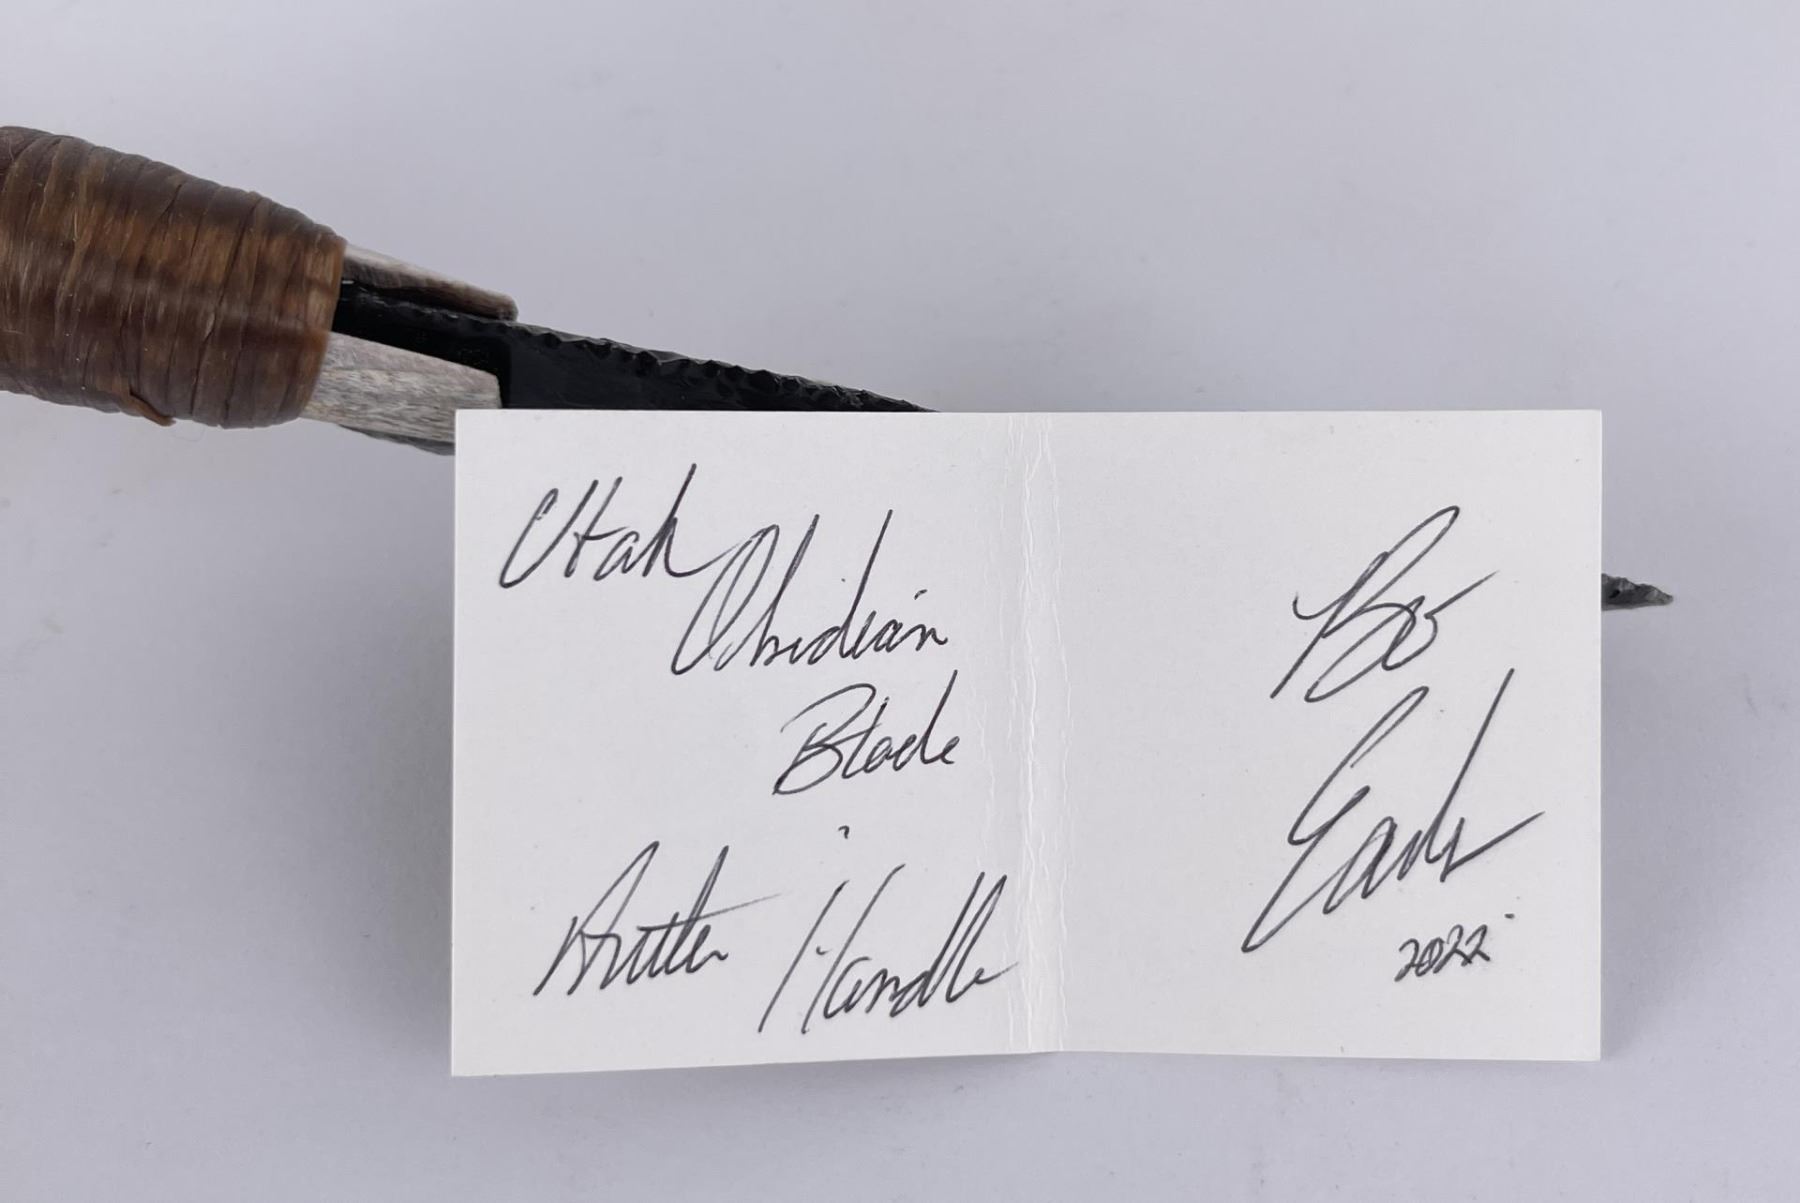 Utah
Obsidian
Blade
Antler Handle
Bo
Earls
2022